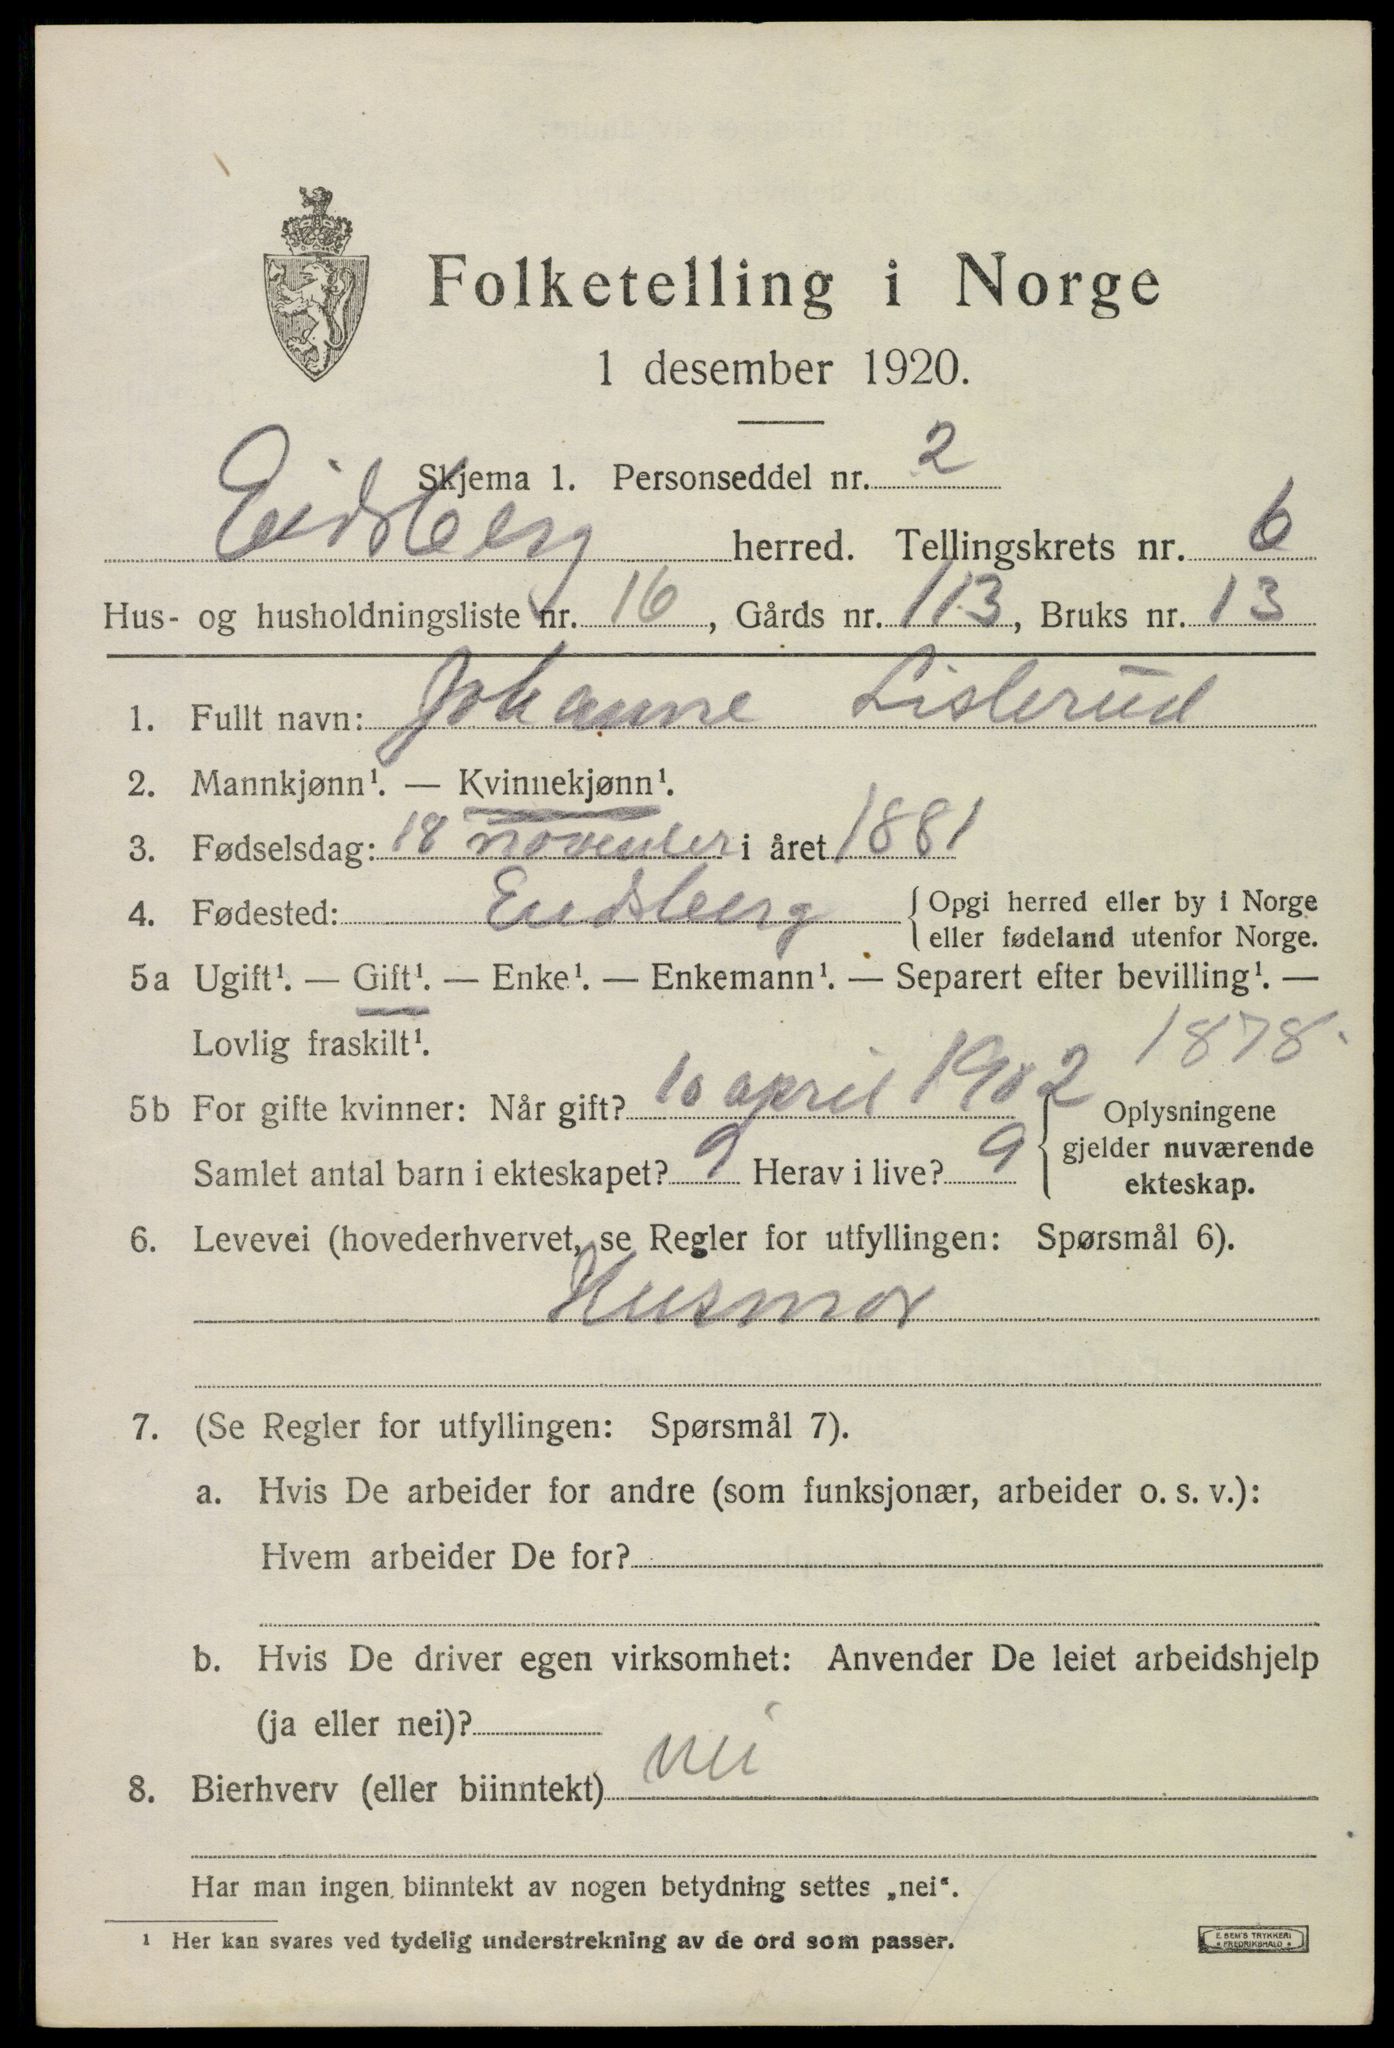 Folketelling i Norge
1 desember 1920.
Skjema 1. Personseddel nr. 2
Eidsberg herred. Tellingskrets nr. 6
Hus- og husholdningsliste nr. 16, Gårds nr. 113, Bruks nr. 13
1. Fullt navn: Johanne Lislerud
2. Mannkjønn¹. — Kvinnekjønn¹.
3. Fødselsdag: 18 november i året 1881
4. Fødested: Eidsberg { Opgi herred eller by i Norge
eller fødeland utenfor Norge.
5a Ugift¹. — Gift¹. — Enke¹. — Enkemann¹. — Separert efter bevilling¹. —
Lovlig fraskilt¹. 1878.
5b For gifte kvinner: Når gift? 10 april 1902 { Oplysningene
gjelder nuværende
ekteskap.
Samlet antal barn i ekteskapet? 9 Herav i live? 9
6. Levevei (hovederhvervet, se Regler for utfyllingen: Spørsmål 6).
Husmor
7. (Se Regler for utfyllingen: Spørsmål 7).
a. Hvis De arbeider for andre (som funksjonær, arbeider o. s. v.):
Hvem arbeider De for?
b. Hvis De driver egen virksomhet: Anvender De leiet arbeidshjelp
(ja eller nei)?
8. Bierhverv (eller biinntekt) nei
Har man ingen biinntekt av nogen betydning settes „nei“.
¹ Her kan svares ved tydelig understrekning av de ord som passer.
E. SEM'S TRYKKERI
• FREDRIKSHALD •